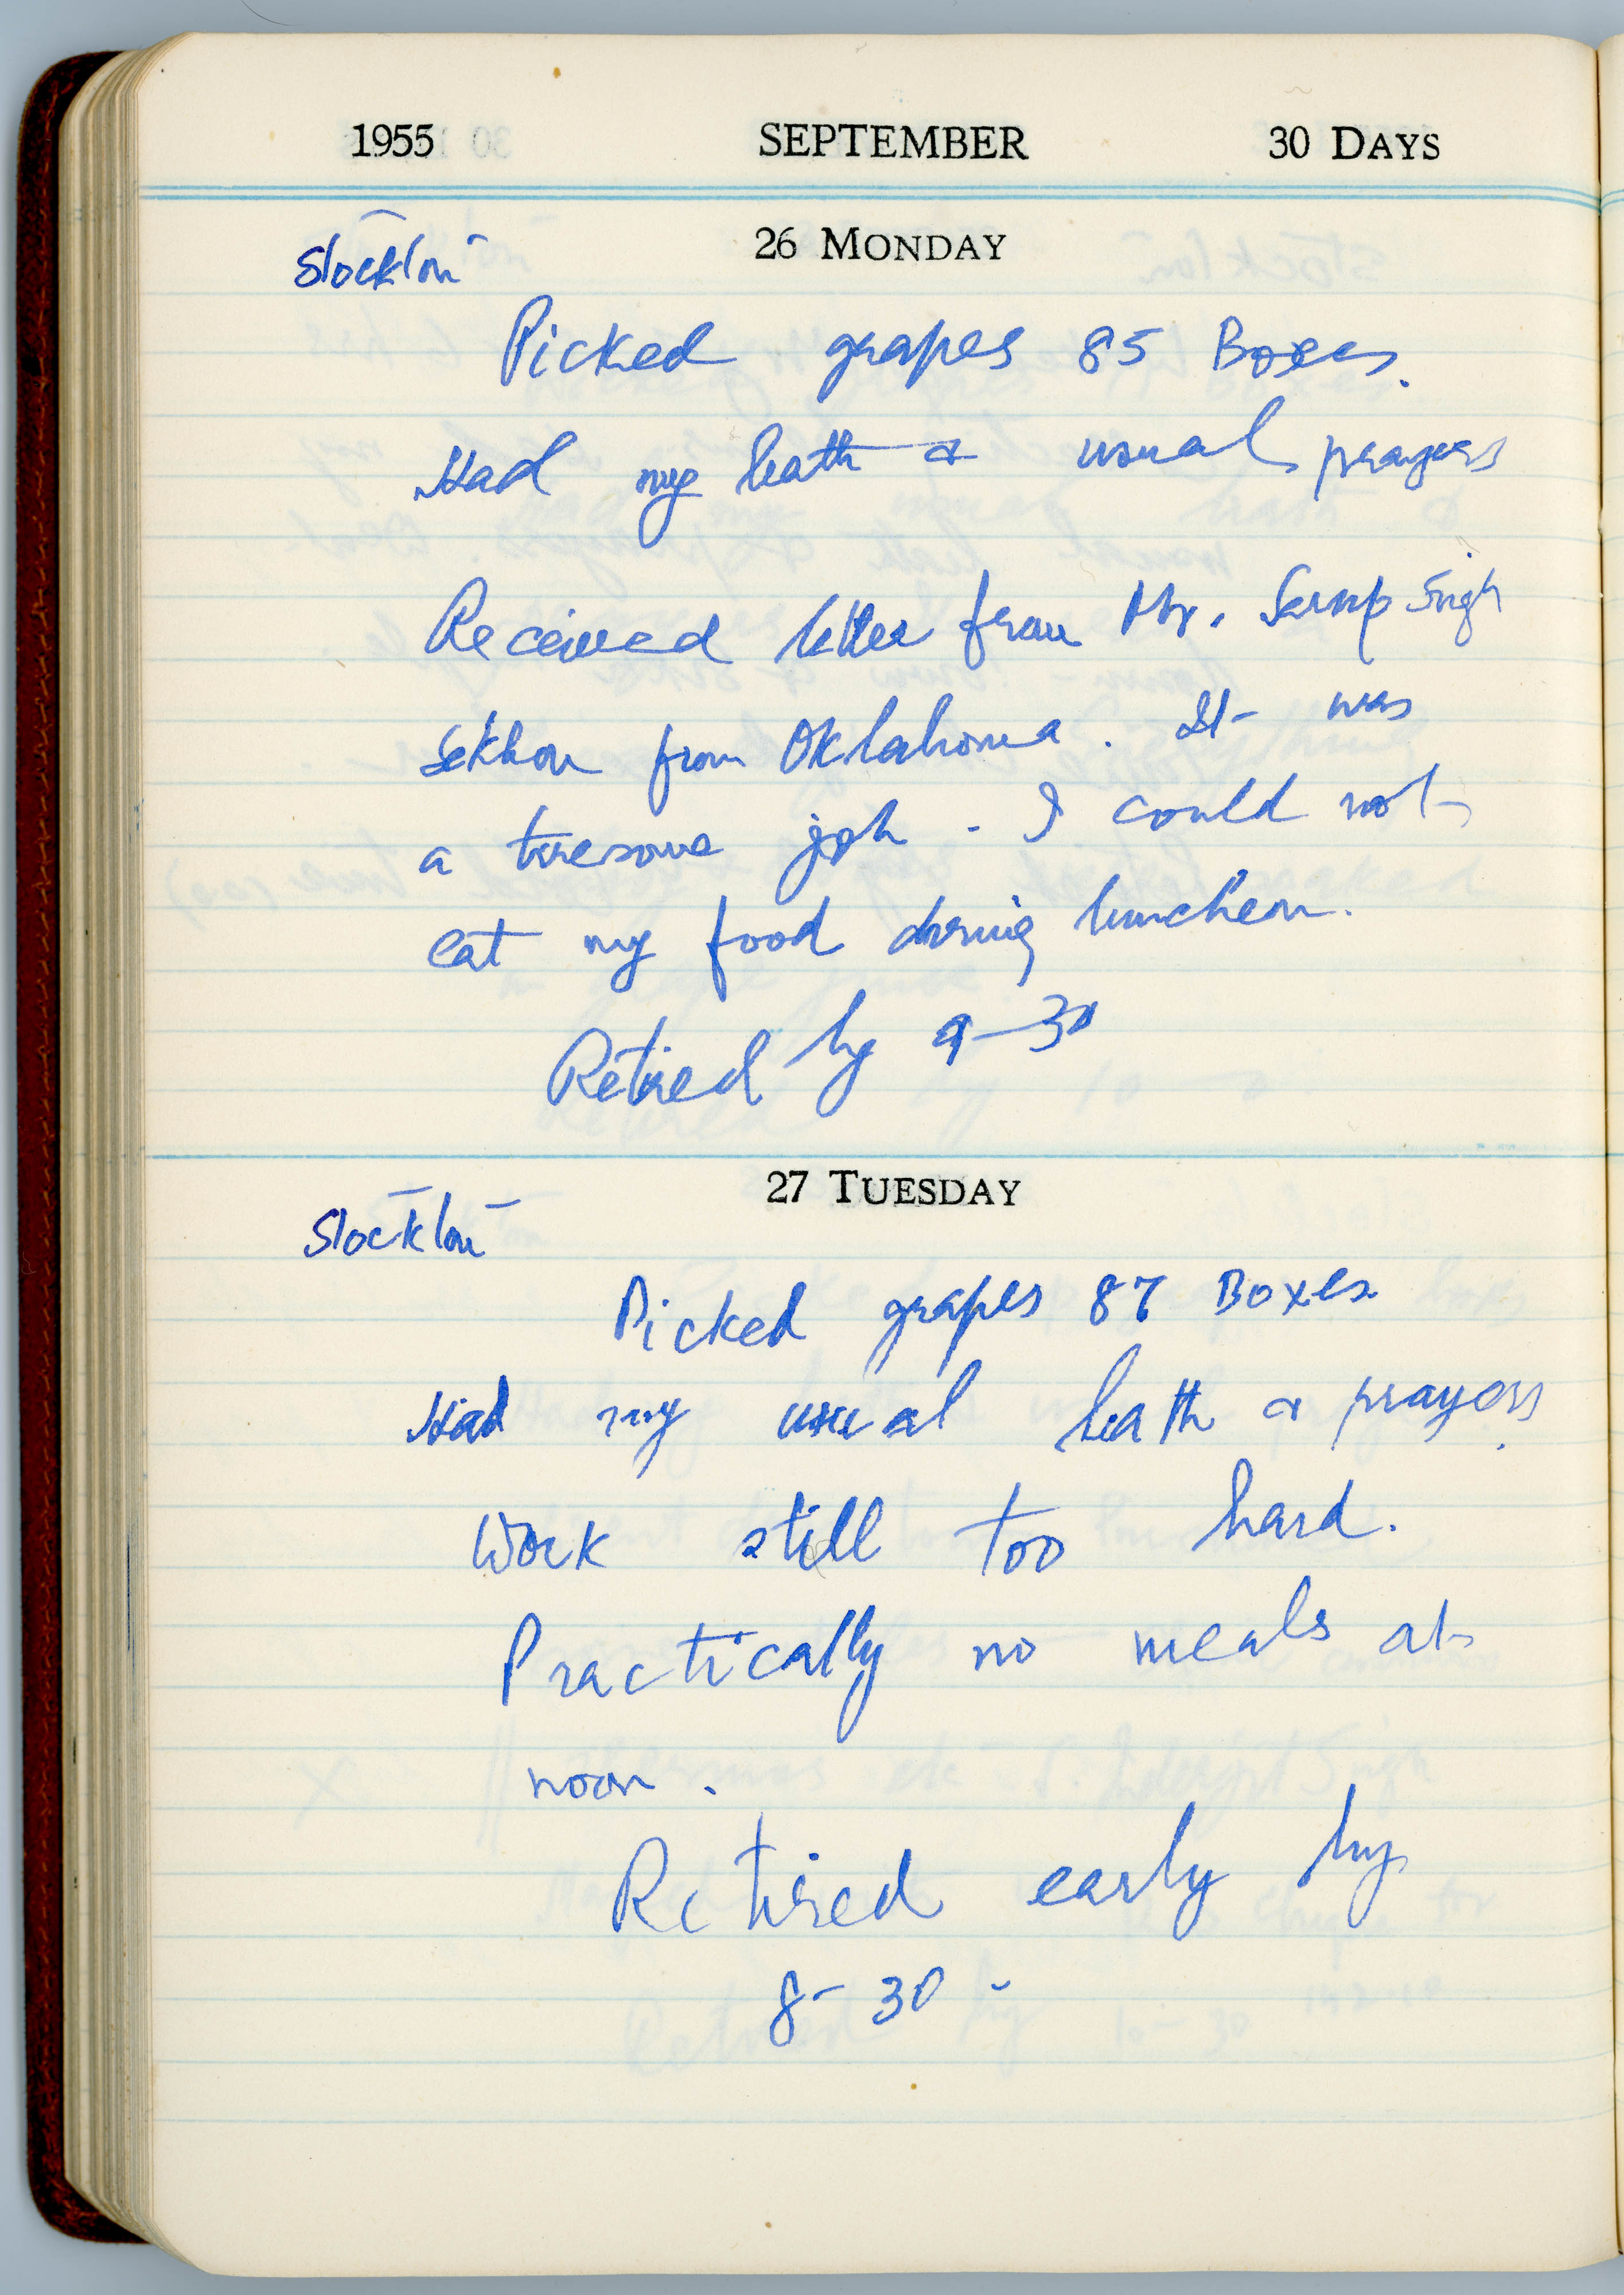 1955 SEPTEMBER 30 DAYS
26 MONDAY
Stockton
Picked grapes 85 Boxes.
Had my bath & usual prayers
Received letter from Mr. Sarup Singh
Sekhon from Oklahoma. It was
a tiresome job. I could not
eat my food during luncheon.
Retired by 9-30
27 TUESDAY
Stockton
Picked grapes 87 Boxes
Had my usual bath & prayers.
Work still too hard.
Practically no meals at
noon.
Retired early by
8-30-